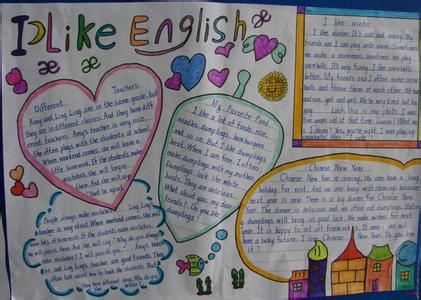 I Like English
æ æ
Different Teachers.
Amy and Ling Ling are in the same grade, but
they are in different classes. And they have diff
erent teachers. Amy's teacher is very nice.
She often plays with the students at school.
When weekend comes, she will leave a
little homework. If the students make
mistakes, she will forgive
them. And she will say
People always make mistakes. Ling Ling's
teacher is very strict. When weekend comes, she will
homework. If the students make mistakes,
she will punish them. And she will say "Why do you always
make mistakes? I will punish you." Amy's teach
er and Ling Ling's teacher are good friends. They
often talk about how to teach the students. But
they have different ideas.
My Favorite Food
I like a lot of foods, rice,
noodles, dumplings, hamburgers
and so on. But I like dumplings
best. When I am free, I often
make dumplings with my mother.
Dumplings look like white
They are delicious.
What about you, my dear
friends? Do you like
dumplings?
I like winter.
I like winter. It's cold and snowy. My
friends and I can play with snow. Sometimes
we make a snowman, sometimes we play
snowballs. It's very funny. I like snowballs
better. My friends and I often make snow
balls and throw them at each other. We run
and run, yell and yell. We're very tired but ha
ppy. Look at this photo. I was
five years old at that time. What am
I doing? Yes, you're right. I was playing
snowballs.
Chinese New Year
Chinese New Year is coming. We can have a long
holiday for rest. And we are busy with cleaning, because
next year is new. There is a big dinner for Chinese New
Year. The dinner is delicious and we often eat dumplings.
dumplings will bring us good luck. We make wishes for next
year. It is happy to set off fireworks. It means we will
have a lucky future. I love Chinese New Year. Do you love
it?